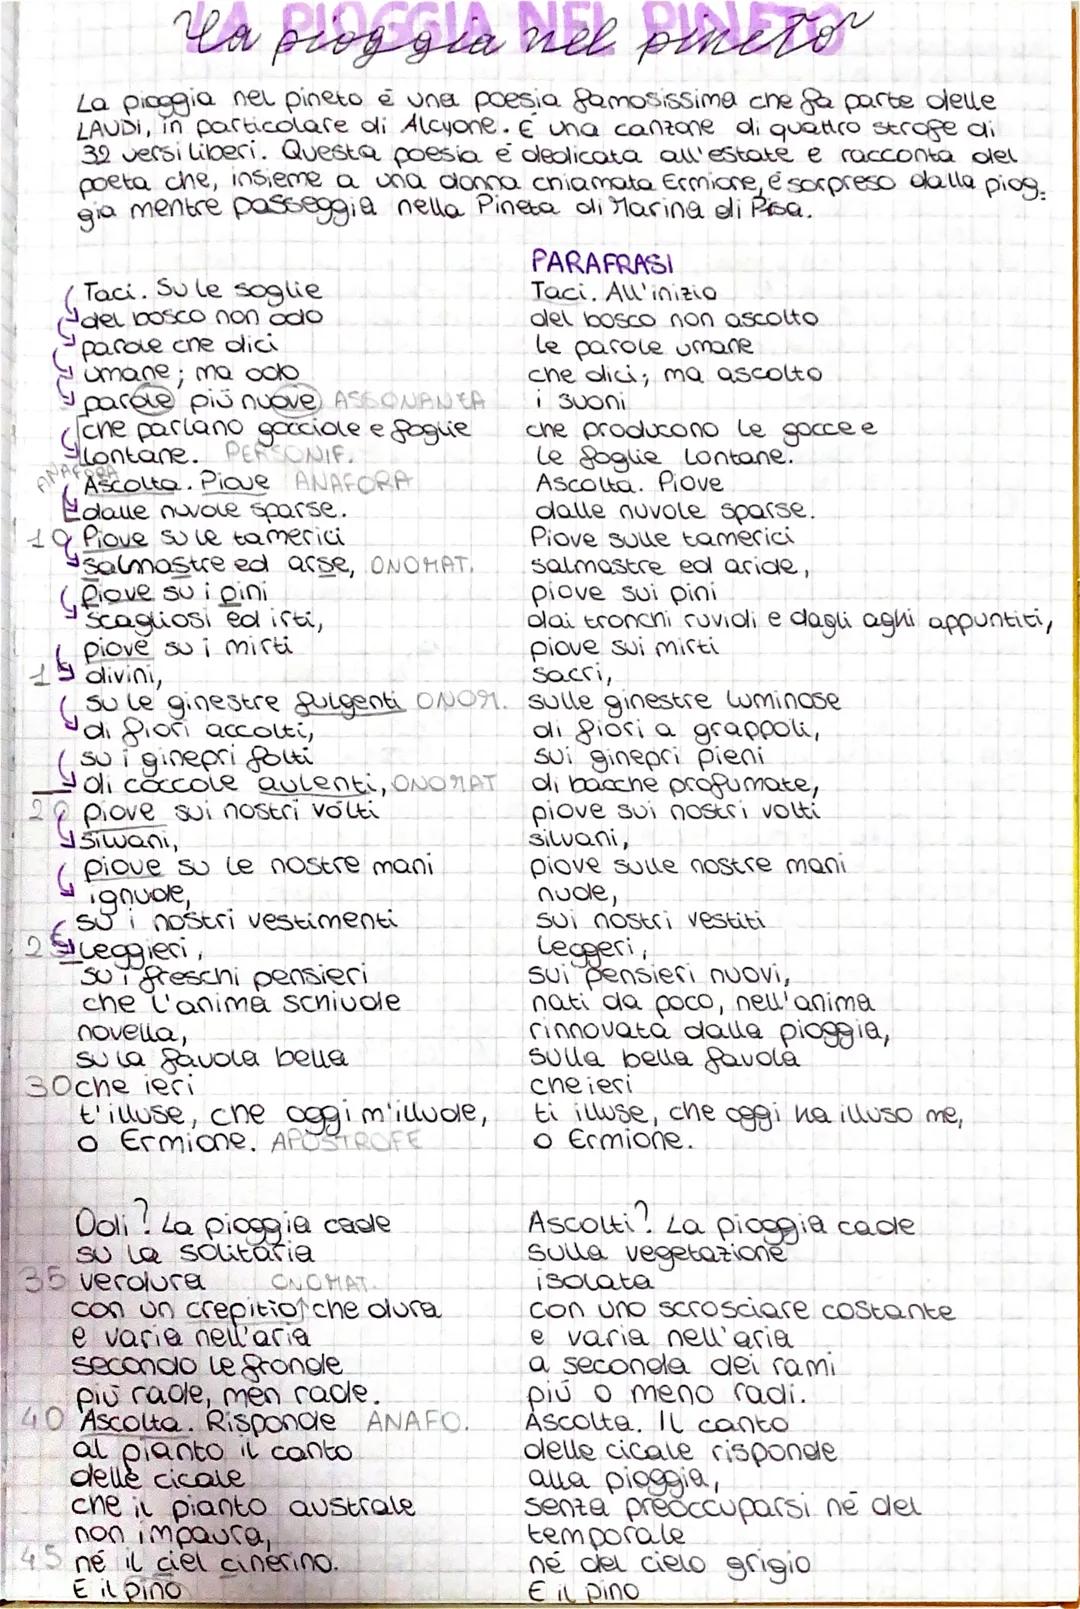 LA PIOGGIA NEL PINETO
La pioggia nel pineto
La pioggia nel pineto é una poesia famosissima che fa parte delle
LAUDI, in particolare di Alcyone. É una canzone di quattro strofe di
32 versi liberi. Questa poesia é dedicata all'estate e racconta del
poeta che, insieme a una donna chiamata Ermione, é sorpreso dalla piog-
gia mentre passeggia nella Pineta di Marina di Pisa.
PARAFRASI
Taci. Su le soglie
del bosco non odo
parole che dici
umane; ma odo
parole più nuove ASSONANZA
che parlano gocciole e foglie
lontane. PERSONIF.
ANAFORA Ascolta. Piove ANAFORA
dalle nuvole sparse.
10 Piove su le tamerici
salmastre ed arse, ONOMAT.
Piove su i pini
scagliosi ed irti,
piove su i mirti
15 divini,
su le ginestre fulgenti ONOM.
di fiori accolti,
su i ginepri folti
di coccole aulenti, ONOMAT
20 piove sui nostri volti
silvani,
piove su le nostre mani
ignude,
su i nostri vestimenti
25 leggieri,
su i freschi pensieri
che l'anima schiude
novella,
su la favola bella
30 che ieri
t'illuse, che oggi m'illude,
o Ermione. APOSTROFE
Taci. All'inizio
del bosco non ascolto
le parole umane
che dici; ma ascolto
i suoni
che producono le gocce e
le foglie lontane.
Ascolta. Piove
dalle nuvole sparse.
Piove sulle tamerici
salmastre ed aride,
piove sui pini
dai tronchi ruvidi e dagli aghi appuntiti,
piove sui mirti
sacri,
sulle ginestre luminose
di fiori a grappoli,
sui ginepri pieni
di bacche profumate,
piove sui nostri volti
silvani,
piove sulle nostre mani
nude,
sui nostri vestiti
leggeri,
sui pensieri nuovi,
nati da poco, nell'anima
rinnovata dalla pioggia,
sulla bella favola
che ieri
ti illuse, che oggi ha illuso me,
o Ermione.
Odi? La pioggia cade
su la solitaria
35 verdura ONOMAT.
con un crepitio che dura
e varia nell'aria
secondo le fronde
più rade, men rade.
40 Ascolta. Risponde ANAFO.
al pianto il canto
delle cicale
che il pianto australe
non impaura,
45 né il ciel cinerino.
E il pino
Ascolti? La pioggia cade
sulla vegetazione
isolata
con uno scrosciare costante
e varia nell'aria
a seconda dei rami
più o meno radi.
Ascolta. Il canto
delle cicale risponde
alla pioggia,
senza preoccuparsi né del
temporale
né del cielo grigio
E il pino